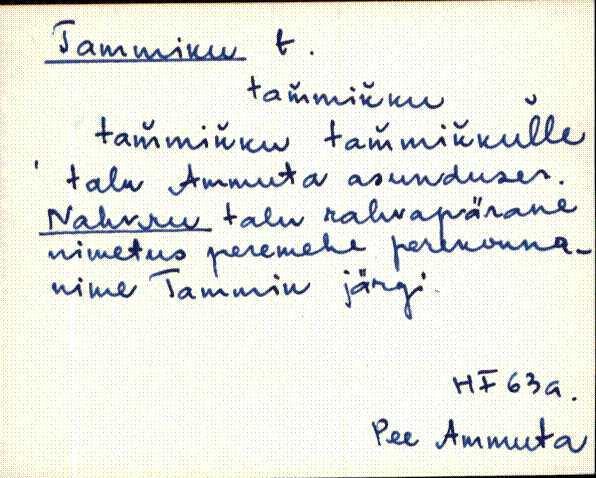 Tammiku t.
tam̆mik̆ku
tam̆mik̆ku tam̆mik̆kul̆le
talu Ammuta asunduses.
Nahkru talu rahvapärane
nimetus peremehe perekonna-
nime Tammik järgi.
HF 63a.
Pee Ammuta